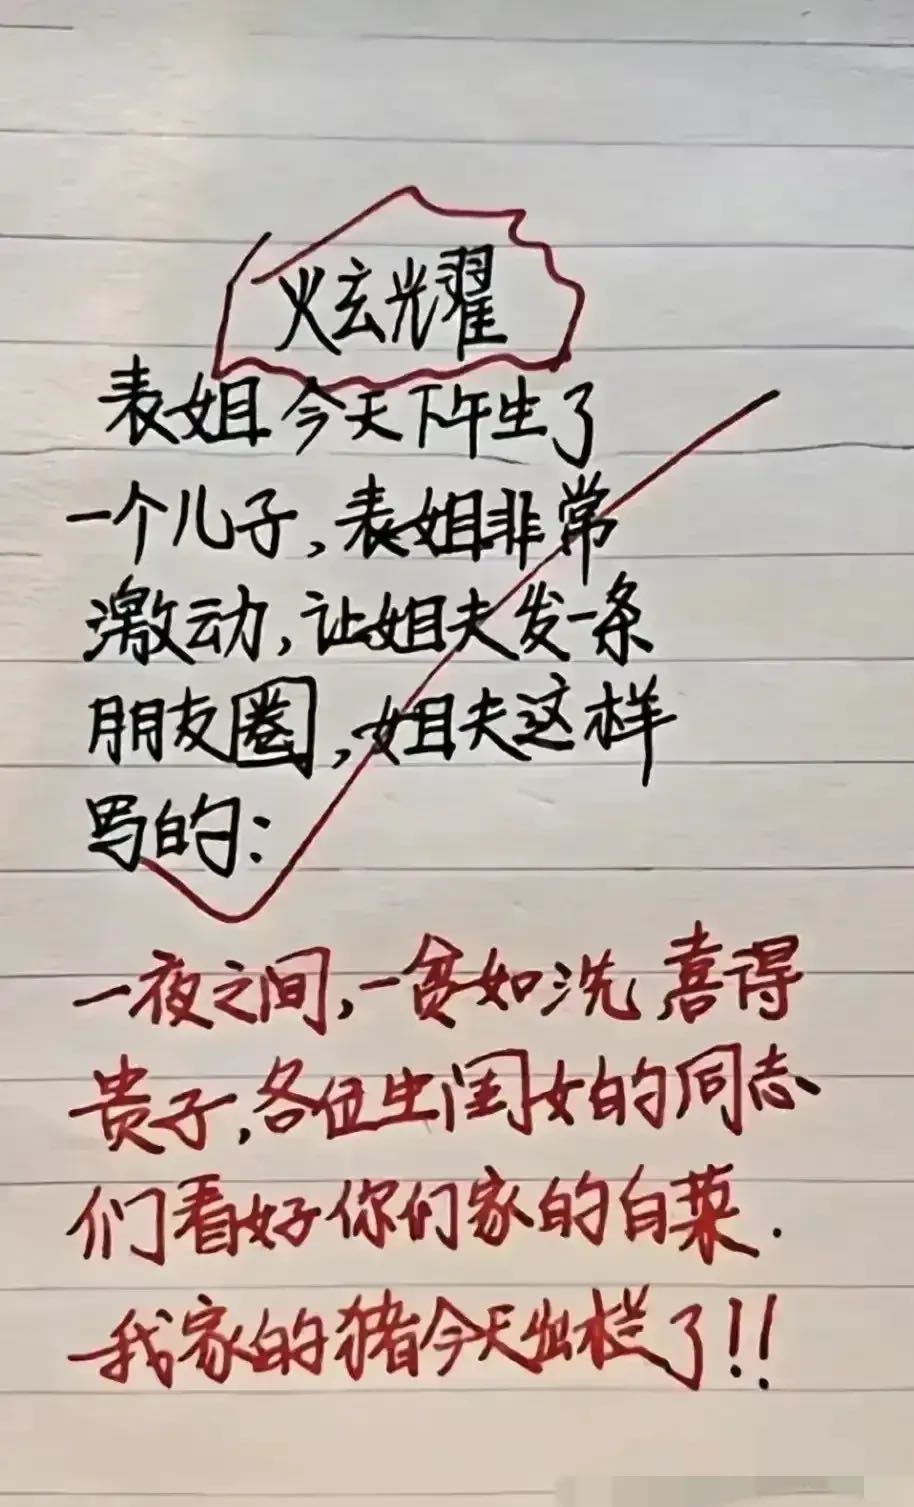 炫光耀
表姐今天下午生了
一个儿子,表姐非常
激动,让姐夫发一条
朋友圈,姐夫这样
写的:
一夜之间,一贫如洗,喜得
贵子,各位生闺女的同志
们看好你们家的白菜.
我家的猪今天出栏了!!